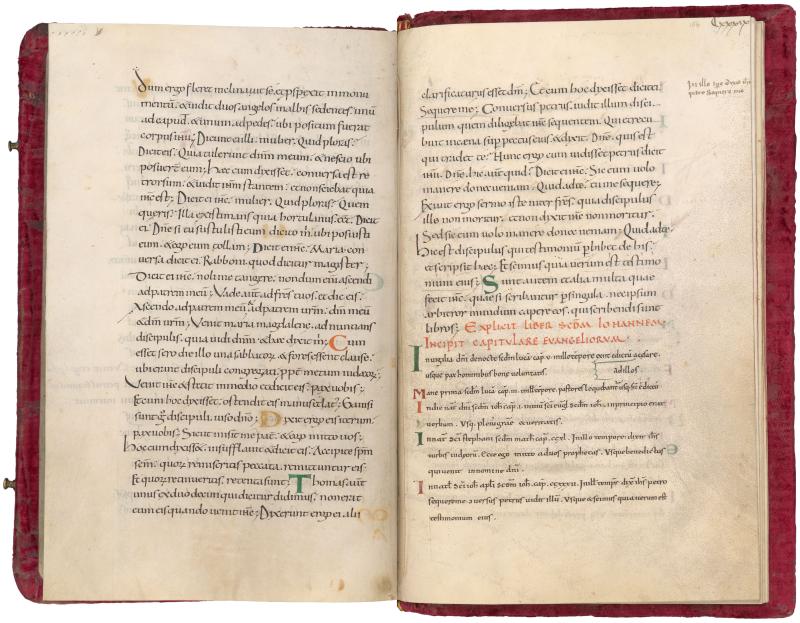 dum ergo fleret inclinauit se. et pspexit in monu
mentū. & uidit duos angelos in albis sedentes. unū
ad caput. & unum. ad pedes. ubi positum fuerat
corpus ihu; Dicunt ei illi. mulier. Quid ploras.
Dicit eis. Quia tulerunt dnm meum. & nescio ubi
posuerᵗ eum; Haec cum dixisset. conuersa est re
trorsum. & uidit ihm stantem. et non sciebat quia
ihc est; Dicit ei ihc. mulier. Quid ploras. Quem
queris. Illa existimans quia hortulanus ect. Dicit
ei. Dne si tu sustulisti eum. dicito m. ubi posuisti
eum. & ego eum tollam; Dicit ei ihc. Maria. Con
uersa dicit ei. Rabboni. quod dicitur magister;
Dicit ei ihc. noli me tangere. nondum enī ascendi
ad patrem meū; Vade aut ad frēs meos. et dic eis.
Ascendo ad patrem meū. & patrem urm. dm meū
& dm urm; Venit maria magdalene. ad nuntians
discipulis. quia uidi dnm. & haec dixit m; Cum
esset sero die illo una sabbatorū. & fores essent clause.
ubi erant discipuli congregati. ppt metum iudaeor;
Venit ihc & stetit in medio et dicit eis. pax uobis;
Et cum hoc dixisset. ostendit eis manus et lat; Gauisi
sunt g discipuli. uiso dno; Dixit ergo eis iterum.
pax uobis; Sicut misit me pat. & ego mitto uos;
hoc cum dixiss&. insufflauit & dicit eis. Accipite spm
scm. quor remiseritis peccata. remittuntur eis.
Et quor retinueritis. retenta sunt; Thomas. aut
unus ex duodecim qui dicitur didimus. non erat
cum eis quando uenit ihc; Dixerunt ergo ei. alii
Lxxxix
In illo tpr dixit ihs
petro Sequere me
clarificaturus esset dm; Et cum hoc dixisset dicit ei.
Sequere me; Conuersus petrus. uidit illum disci
pulum quem diligebat ihc sequentem. Qui et recu
buit in cena sup pectus eius. & dixit. Dne. quis est
qui tradet te. Hunc ergo cum uidisset petrus dicit
ihu. Dne. hic aut quid. Dicit ei ihc. Sic eum uolo
manere donec ueniam. Quid ad te. tu me sequere;
Exiuit ergo sermo iste inter frēs. quia discipulus
ille non moritur. et non dixit ei ihc non moritur.
Sed sic eum uolo manere donec ueniam. Quid ad te.
Hic est discipulus qui testimoniū phibet de his.
et scripsit haec; Et scimus quia uerum est testimo
nium eius; Sunt autem et alia multa quae
fecit ihc. quae si scribantur p singula. nec ipsum
arbitror mundum capere eos. qui scribendi sunt
libros; EXPLICIT LIBER SCDM IOHANNEM.
INCIPIT CAPITULARE EVANGELIORUM.
In uigilia dni de nocte scdm lucā cap. v. In illo tempore exiit edictū a cesare.
usque pax hominibus bone uoluntatis. ad illos.
Mane prima scdm lucā cap. In illo tempore. pastores loquebantur
In die nat dni scdm ioh. cap. In principio erat
uerbum. Vsq. plenū gratiae & ueritatis.
In nat Sci stephani scdm math cap. ccxl. In illo tempore dixit ihs
turbis iudeorū. Ecce ego mitto ad uos prophetas. Vsque benedictus
qui uenit in nomine dni.
In nat Sci ioh apli scdm ioh. cap. ccxxxii. In illo temp dix ihs petro
sequere me. Conuersus petrus uidit illū. Vsque & scimus quia uerum est
testimonium eius.